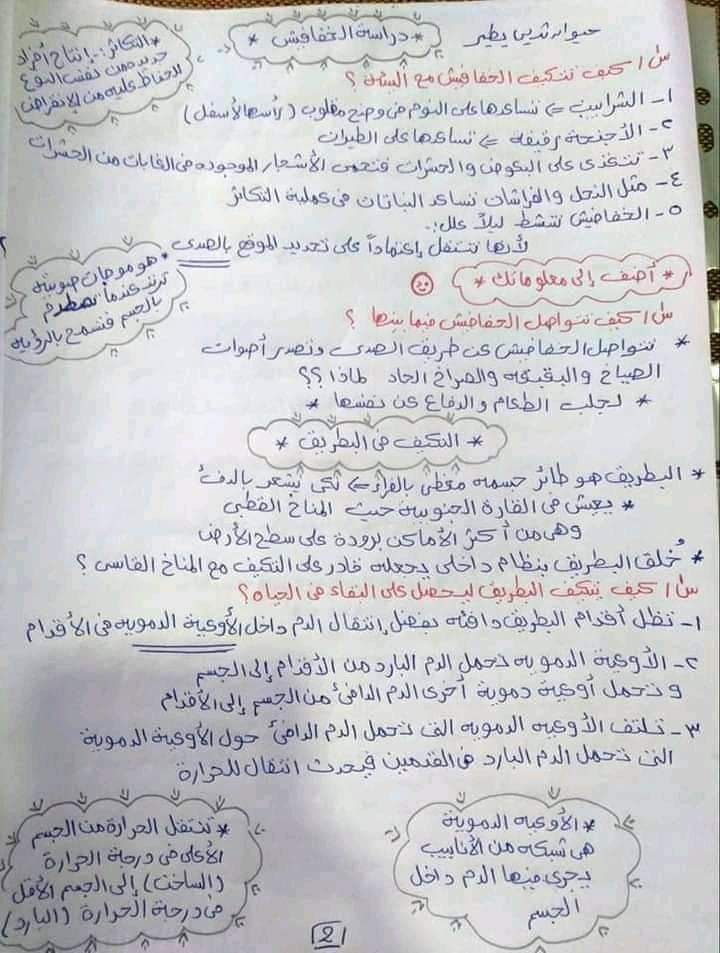 حيوان ثديي يطير
* دراسة الخفافيش *
* التكاثر :- إنتاج أفراد
جديدة من نفس النوع
للحفاظ عليه من الإنقراض
س١ كيف تتكيف الخفافيش مع البيئة ؟
١- الشرايين ⇐ تساعدها على النوم في وضع مقلوب (رأسها لأسفل)
٢- الأجنحة رقيقة ⇐ تساعدها على الطيران
٣- تتغذى على البعوض والحشرات فتحمى الأشجار الموجودة في الغابات من الحشرات
٤- مثل النحل والفراشات تساعد النباتات في عملية التكاثر
٥- الخفافيش تنشط ليلاً علل؛
لأنها تتنقل إعتماداً على تحديد الموقع بالصدى
* هو موجات صوتية
ترتد عندما تصطدم
بالجسم فتسمح بالرؤية
* أضف إلى معلوماتك *
س١ كيف تتواصل الخفافيش فيما بينها ؟
* تتواصل الخفافيش عن طريق الصدى وتصدر أصوات
الصياح والبقبقة والصراخ الحاد لماذا ؟؟
* لجلب الطعام والدفاع عن نفسها *
* التكيف في البطريق *
* البطريق هو طائر جسمه مغطى بالفراء ⇐ لكى يشعر بالدفء
* يعيش في القارة الجنوبية حيث المناخ القطبى
وهى من أكثر الأماكن برودة على سطح الأرض
* خُلق البطريق بنظام داخلى يجعله قادر على التكيف مع المناخ القاسى ؟
س١ كيف يتكيف البطريق ليحصل على البقاء في الحياه ؟
١- تظل أقدام البطريق دافئه بفضل إنتقال الدم داخل الأوعية الدموية في الأقدام
٢- الأوعية الدموية تحمل الدم البارد من الأقدام إلى الجسم
وتحمل أوعية دموية أخرى الدم الدافئ من الجسم إلى الأقدام
٣- تلتف الأوعيه الدمويه التى تحمل الدم الدافئ حول الأوعية الدموية
التى تحمل الدم البارد في القدمين فيحدث انتقال للحرارة
* الأوعيه الدموية
هى شبكه من الأنابيب
يجرى فيها الدم داخل
الجسم
* تنتقل الحرارة من الجسم
الأعلى في درجة الحرارة
(الساخن) إلى الجسم الأقل
في درجة الحرارة (البارد)
2